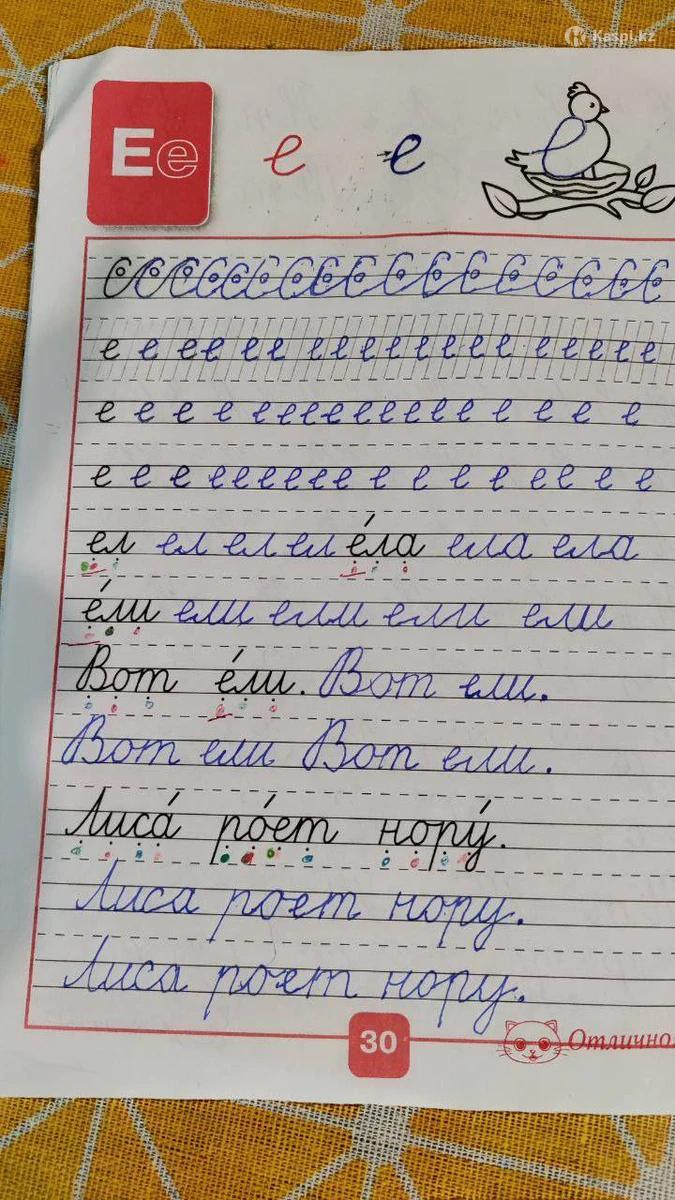 Kaspi.kz
Ее е е
е е е е е е е е е е е е е е е е е
е е е е е е е е е е е е е е е е е е е
е е е е е е е е е е е е е е е е е
е е е е е е е е е е е е е е е е е
ел ел ел ел е́ла ела ела
е́ли ели ели ели ели
Вот е́ли. Вот ели.
Вот ели Вот ели.
Лиса́ ро́ет нору́.
Лиса роет нору.
Лиса роет нору.
30 Отлично